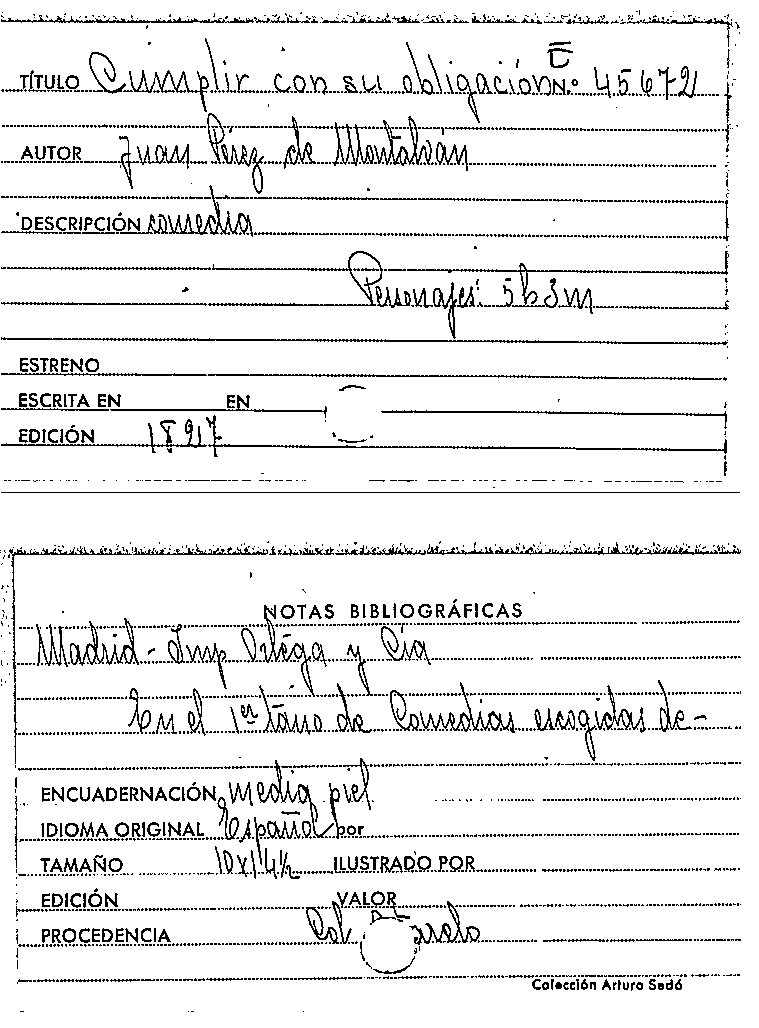 TÍTULO Cumplir con su obligación N.º 45672
AUTOR Juan Pérez de Montalván
DESCRIPCIÓN comedia
Personajes: 5h3m
ESTRENO
ESCRITA EN EN
EDICIÓN 1827
NOTAS BIBLIOGRÁFICAS
Madrid - Imp Ortega y Cía
En el 1er tomo de Comedias escogidas de-
ENCUADERNACIÓN media piel
IDIOMA ORIGINAL Español por
TAMAÑO 10x14½ ILUSTRADO POR
EDICIÓN VALOR
PROCEDENCIA Col.
Colección Arturo Sedó